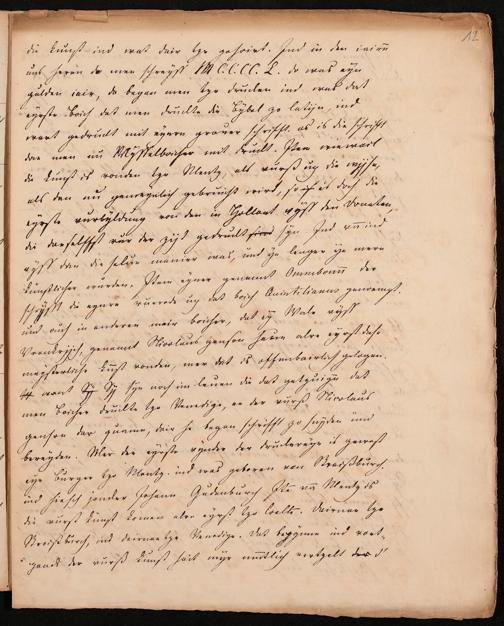 12
die kunst ind wat dair tzo gehoirt. Ind in den iairen
uns heren do men schreyff MCCCCL. do was eyn
gulden iair, do began men tzo drucken ind was dat
eyrste boich dat men druckte die Bybel zo latijn, ind
wart gedruckt mit eynre grover schrifft. as is die schrifft
dae men nu Mysselboicher mit druckt. Item wiewail
die kunst is vonden tzo Mentz, als vurß up die wijse,
als dan nu gemeynlich gebruicht wirt, so is doch die
eyrste vurbyldung vonden in Hollant vyß den Donaten,
die daeselffst vur der zijt gedruckt syn. Ind
vyß den die selve manier was, und ye lenger ye mere
kunstlicher wurden. Item eynre genannt Omnebonum der
schryfft in eynre vurrede up dat boich Quintilianus genoempt.
und ouch in anderen meir boicher, dat eyn Wale vyß
Vranckrijch, genannt Nicolaus genson have alre eyrst dese
meysterliche kunst vonden, mer dat is offenbairlich gelogen.
want Sij syn noch im leven die dat getzuigen dat
men boicher druckte tzo Venedige, ee der vurß Nicolaus
genson dar quame, dair he began schrifft zo snyden und
bereyden. Mer der eyrste vynder der druckerye is gewest
eyn burger tzo Mentz. ind was geboren van Straißburch.
ind hiesch joncker Johann Gudenburch Item van Mentz is
die vurß kunst komen alre eyrst tzo Coellen. Dairnae tzo
Straißburch, ind dairnae tzo Venedige. Dat begynne ind vort-
gank der vurß kunst hait myr muntlich vertzelt der